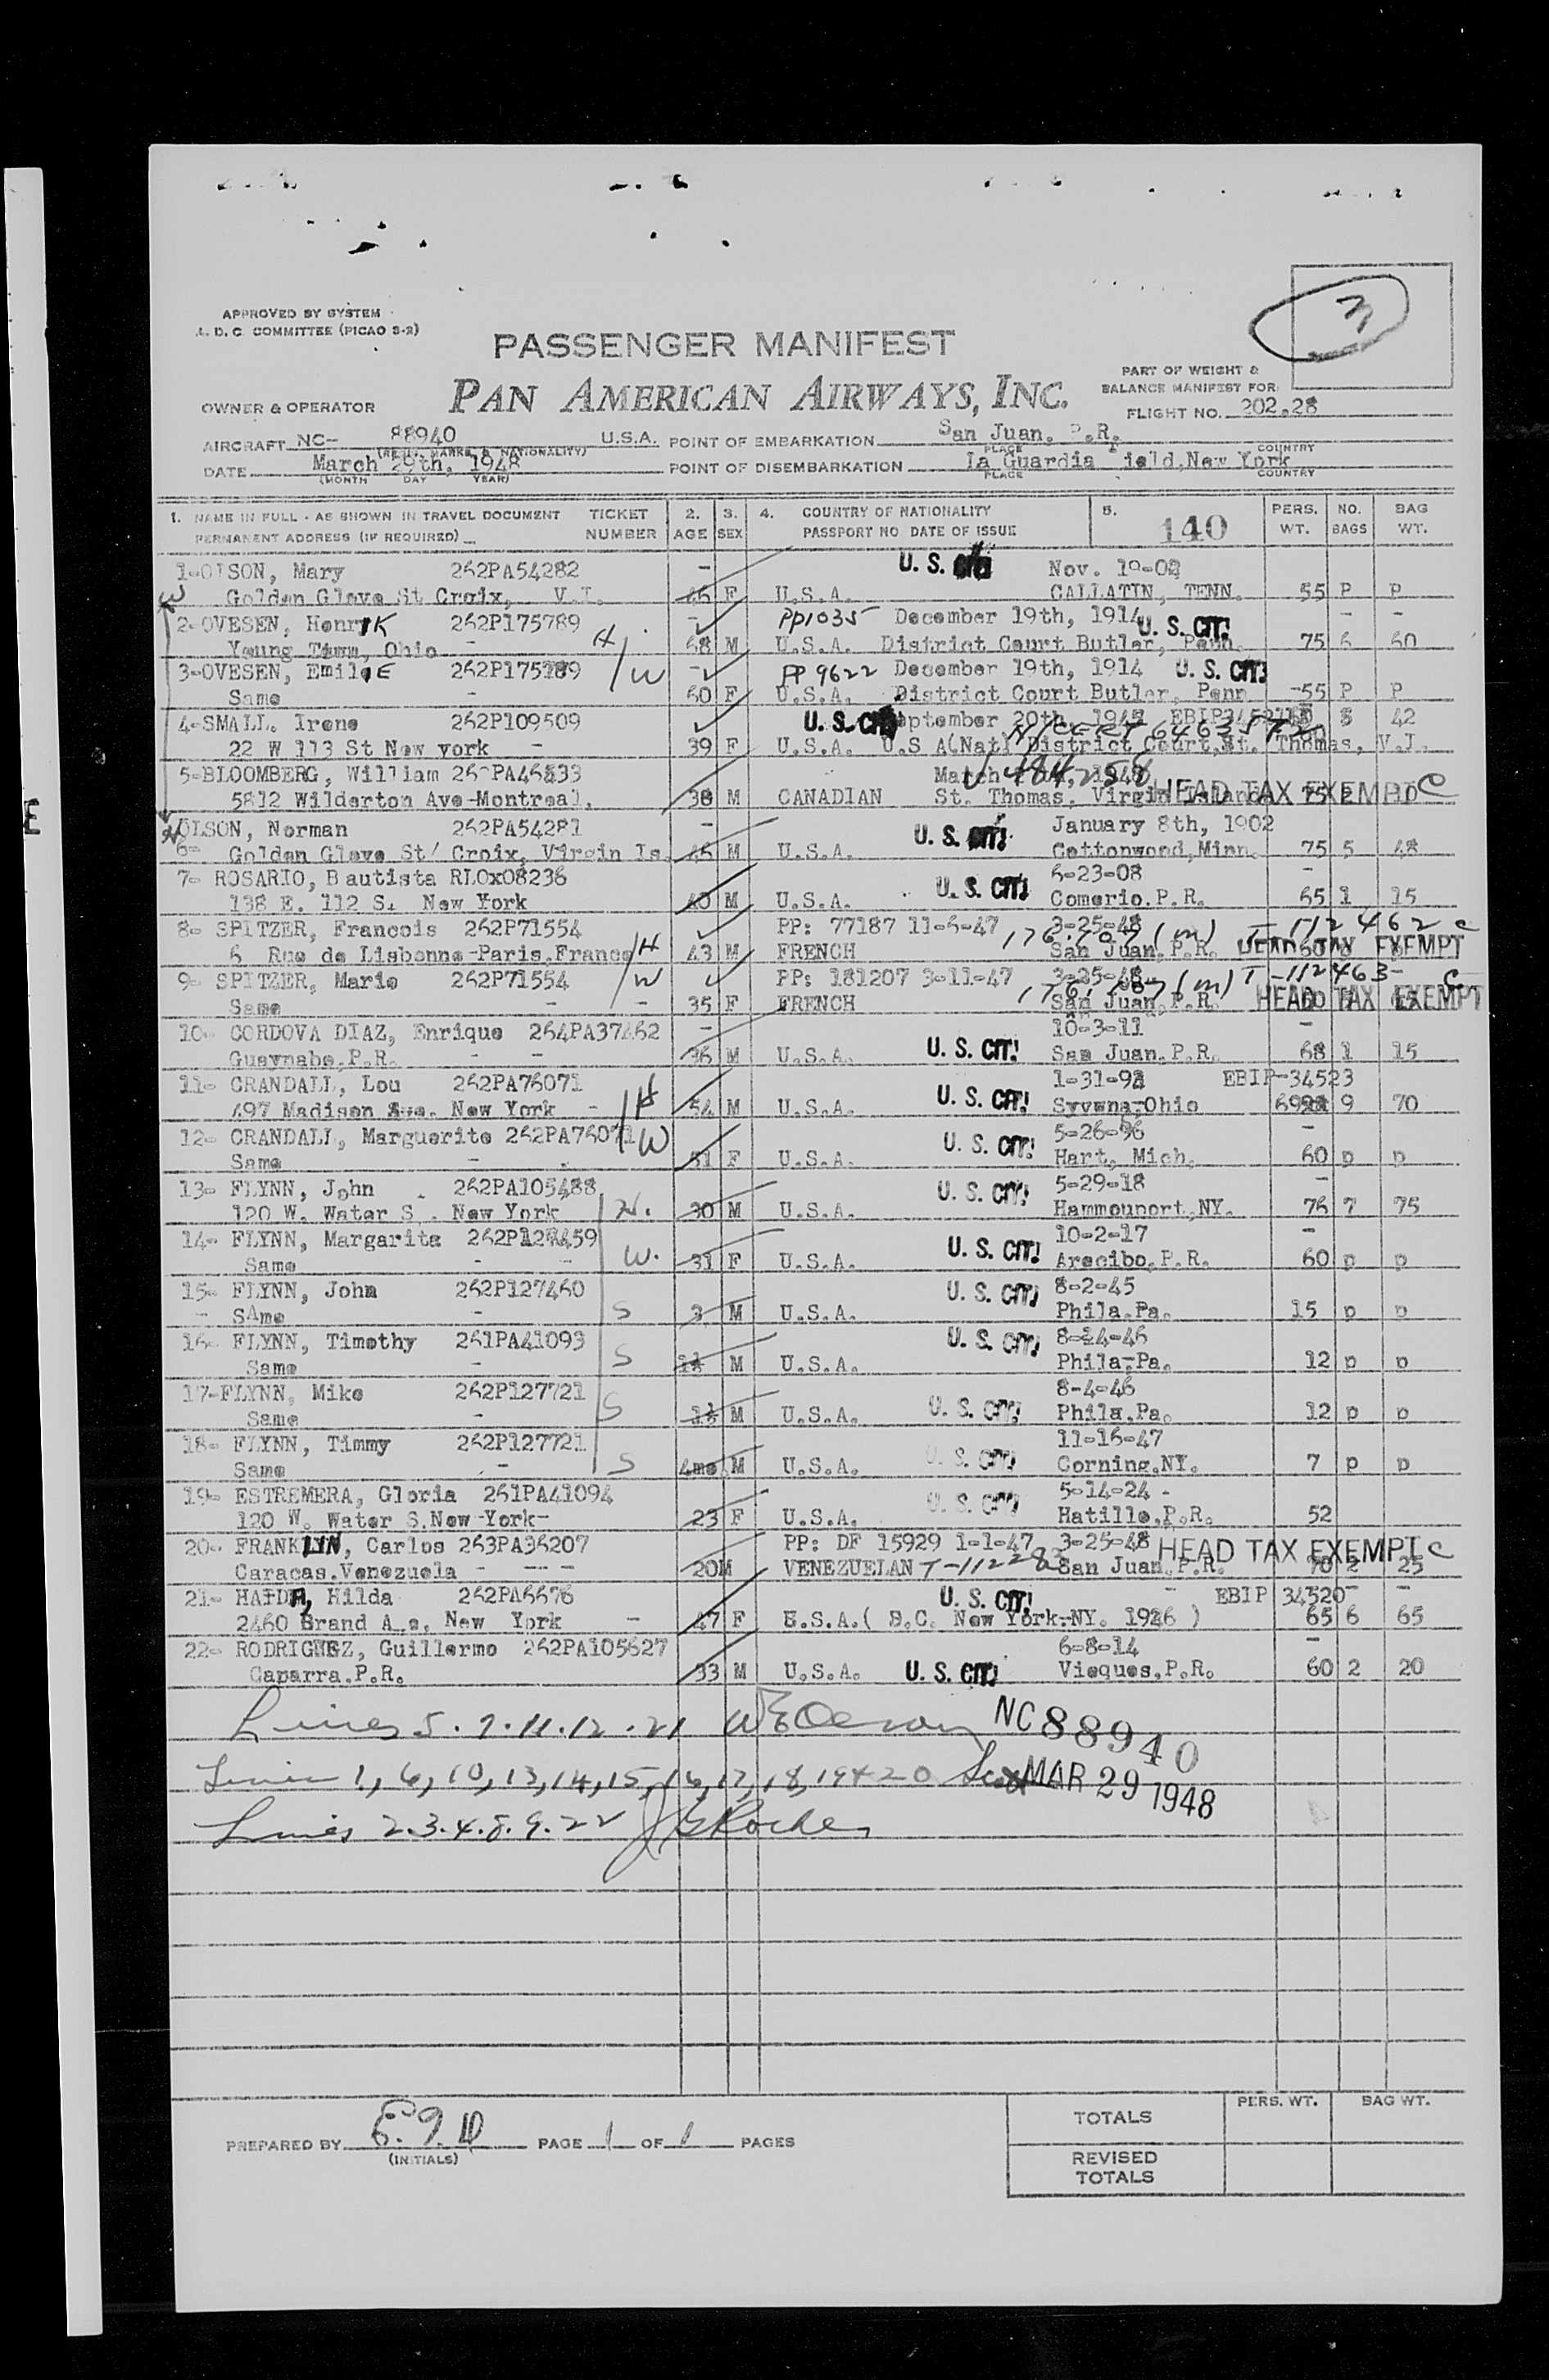 E
3
APPROVED BY SYSTEM
A. D. C. COMMITTEE (PICAO 3-2)
PASSENGER MANIFEST
PAN AMERICAN AIRWAYS, INC.
PART OF WEIGHT &
BALANCE MANIFEST FOR
FLIGHT NO. 202.28
OWNER & OPERATOR
AIRCRAFT NC- 88940 U.S.A. POINT OF EMBARKATION San Juan. P.R.
DATE March 29th, 1948 POINT OF DISEMBARKATION La Guardia Field,New York
(MONTH DAY YEAR) PLACE COUNTRY
1. NAME IN FULL - AS SHOWN IN TRAVEL DOCUMENT TICKET 2. 3. 4. COUNTRY OF NATIONALITY 5. 140 PERS. NO. BAG
PERMANENT ADDRESS (IF REQUIRED) NUMBER AGE SEX PASSPORT NO DATE OF ISSUE WT. BAGS WT.
1-OLSON, Mary 262PA54282 - U. S. Nov. 19-02
W Golden Glove St Croix, V.I. 46 F U.S.A. GALLATIN, TENN. 55 P P
2-OVESEN, HenrIK 262P175789 - PP1035 December 19th, 1914 U. S. CIT! - -
Young Ohio - H 68 M U.S.A. District Court Butler, Penn. 75 6 60
3-OVESEN, EmilIE 262P175789 W - PP 9622 December 19th, 1914 U. S. CIT!
Same - 60 F U.S.A. District Court Butler, Penn -55 P P
4-SMALL. Irene 262P109509 U. S. CIT! September 20th, 42
22 W 113 St New york - 39 F U.S.A. U.S A(Nat) District Court,St. Thomas, V.I.
5-BLOOMBERG, William March
5812 Wilderton Ave-Montreal. 38 M CANADIAN St. Thomas. Virgin HEAD TAX EXEMPT C
OLSON, Norman 262PA54281 - U. S. CIT! January 8th, 1902
6- Golden Glove St/ Croix, Virgin Is. 45 M U.S.A. Cottonwood,Minn. 75 5 48
7- ROSARIO, Bautista RLOx08236 U. S. CIT! 6-23-08 -
138 E. 112 St New York 40 M U.S.A. Comerio.P.R. 65 1 15
8- SPITZER, Francois 262P71554 PP: 77187 11-6-47 3-25-48 T-112462 C
6 Rue de Lisbonne-Paris.France H 43 M FRENCH San Juan,P.R. HEAD TAX EXEMPT
9- SPITZER, Marie 262P71554 W PP: 181207 3-11-47 3-25-48 T-112463 C
Same - - 35 F FRENCH San Juan,P.R. HEAD TAX EXEMPT
10- CORDOVA DIAZ, Enrique 264PA37462 - 10-3-11 -
Guaynabo.P.R. - - 36 M U.S.A. U. S. CIT! San Juan.P.R. 68 1 15
11- CRANDALL, Lou 262PA76071 1-31-93 EBIP-34523
497 Madison Ave. New York - H 54 M U.S.A. U. S. CIT! 9 70
12- CRANDALL, Marguerite 262PA76071 W U. S. CIT! 5-26-96 -
Same - 51 F U.S.A. Hart, Mich. 60 p p
13- FLYNN, John 262PA105488 U. S. CIT! 5-29-18 -
120 W. Water S . New York H. 30 M U.S.A. Hammounport,NY. 76 7 75
14- FLYNN, Margarita 262P127459 10-2-17 -
Same - - W. 31 F U.S.A. U. S. CIT! Arecibo,P.R. 60 p p
15- FLYNN, John 262P127460 U. S. CIT! 8-2-45
- SAme - S 3 M U.S.A. Phila.Pa. 15 p p
16- FLYNN, Timothy 261PA41093 U. S. CIT! 8-14-46
Same - S 1½ M U.S.A. Phila.Pa. 12 p p
17-FLYNN, Mike 262P127721 8-4-46
Same - S 1½ M U.S.A. U. S. CIT! Phila.Pa. 12 p p
18- FLYNN, Timmy 262P127721 11-16-47
Same - S 4mo M U.S.A. U. S. CIT! Corning.NY. 7 p p
19- ESTREMERA, Gloria 261PA41094 5-14-24 -
120 W. Water S.New-York- 23 F U.S.A. U. S. CIT! Hatillo,P.R. 52
20- FRANKLIN, Carlos 263PA36207 PP: DF 15929 1-1-47 3-25-48 HEAD TAX EXEMPT C
Caracas.Venezuela - - - 20M VENEZUELAN San Juan,P.R. 70 2 25
21- Hilda 262PA6676 U. S. CIT! - EBIP 34520- -
2460 Grand Ave, New York - 47 F U.S.A.( New York-NY. 1926 ) 65 6 65
22- RODRIGUEZ, Guillermo 262PA105627 6-8-14 -
Caparra.P.R. 33 M U.S.A. U. S. CIT! Vieques,P.R. 60 2 20
Lines 5. 7. 11. 12. 21 NC 88940
Lines 1, 6, 10, 13, 14, 15, 16, 17, 18, 19 & 20 MAR 29 1948
Lines 2. 3. 4. 8. 9. 22 Roche
TOTALS PERS. WT. BAG WT.
PREPARED BY PAGE 1 OF 1 PAGES
(INITIALS)
REVISED
TOTALS